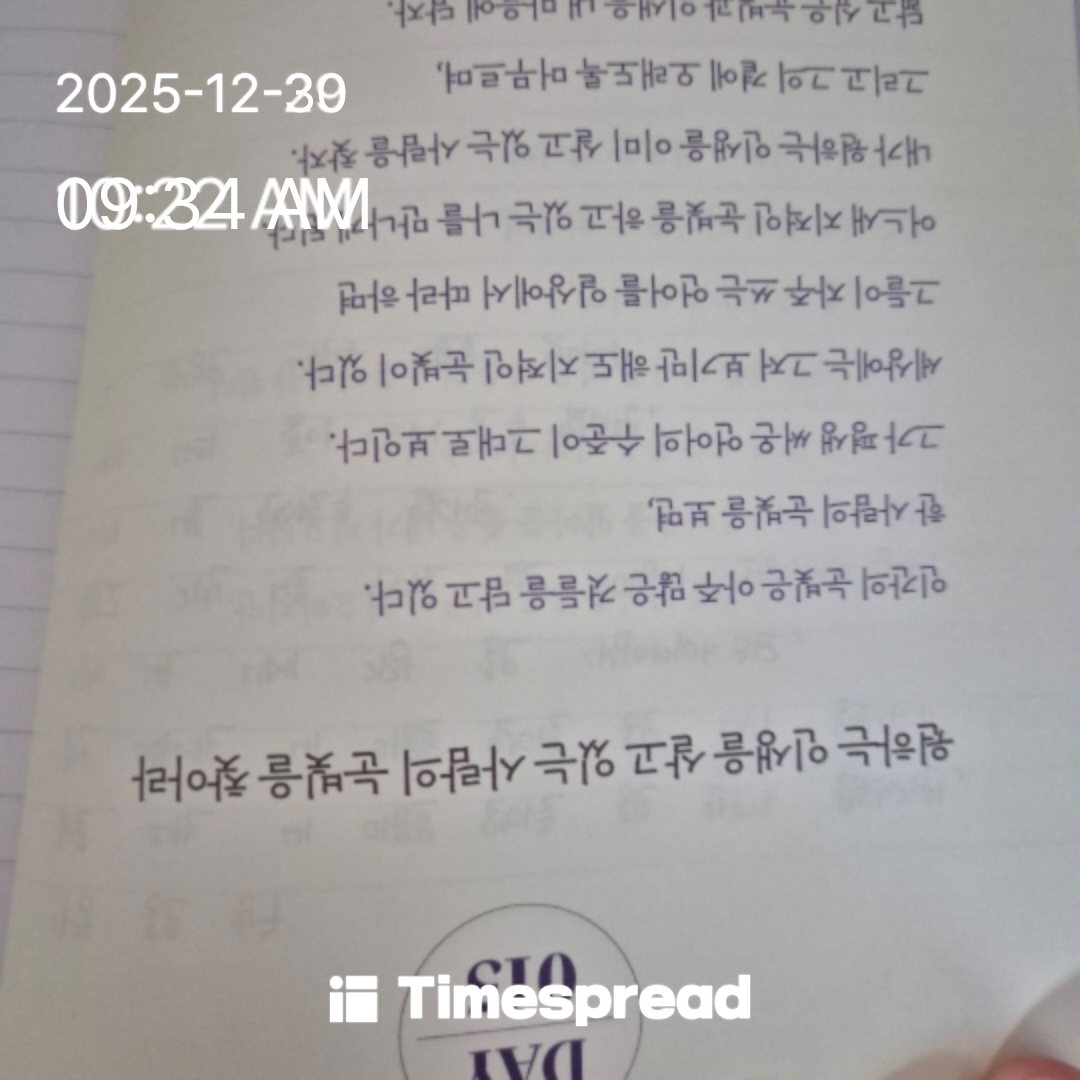 DAY
015
원하는 인생을 살고 있는 사람의 눈빛을 찾아라
인간의 눈빛은 아주 많은 것들을 담고 있다.
한 사람의 눈빛을 보면,
그가 평생 써온 언어의 수준이 그대로 보인다.
세상에는 그저 보기만 해도 지적인 눈빛이 있다.
그들이 자주 쓰는 언어를 일상에서 따라 하면
어느새 지적인 눈빛을 하고 있는 나를 만나게 된다.
내가 원하는 인생을 이미 살고 있는 사람을 찾자.
그리고 그의 곁에 오래도록 머무르며,
닮고 싶은 눈빛과 인생을 내 마음에 담자.
2025-12-
AM
Timespread